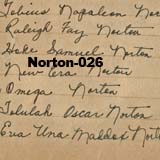 Tobius Napoleon Nor
Raleigh Fay Norton
Hoke Samuel Norton
Norton-026
New Era Norton
Omega Norton
Tolulah Oscar Norton
Eva Una Maddox Norto